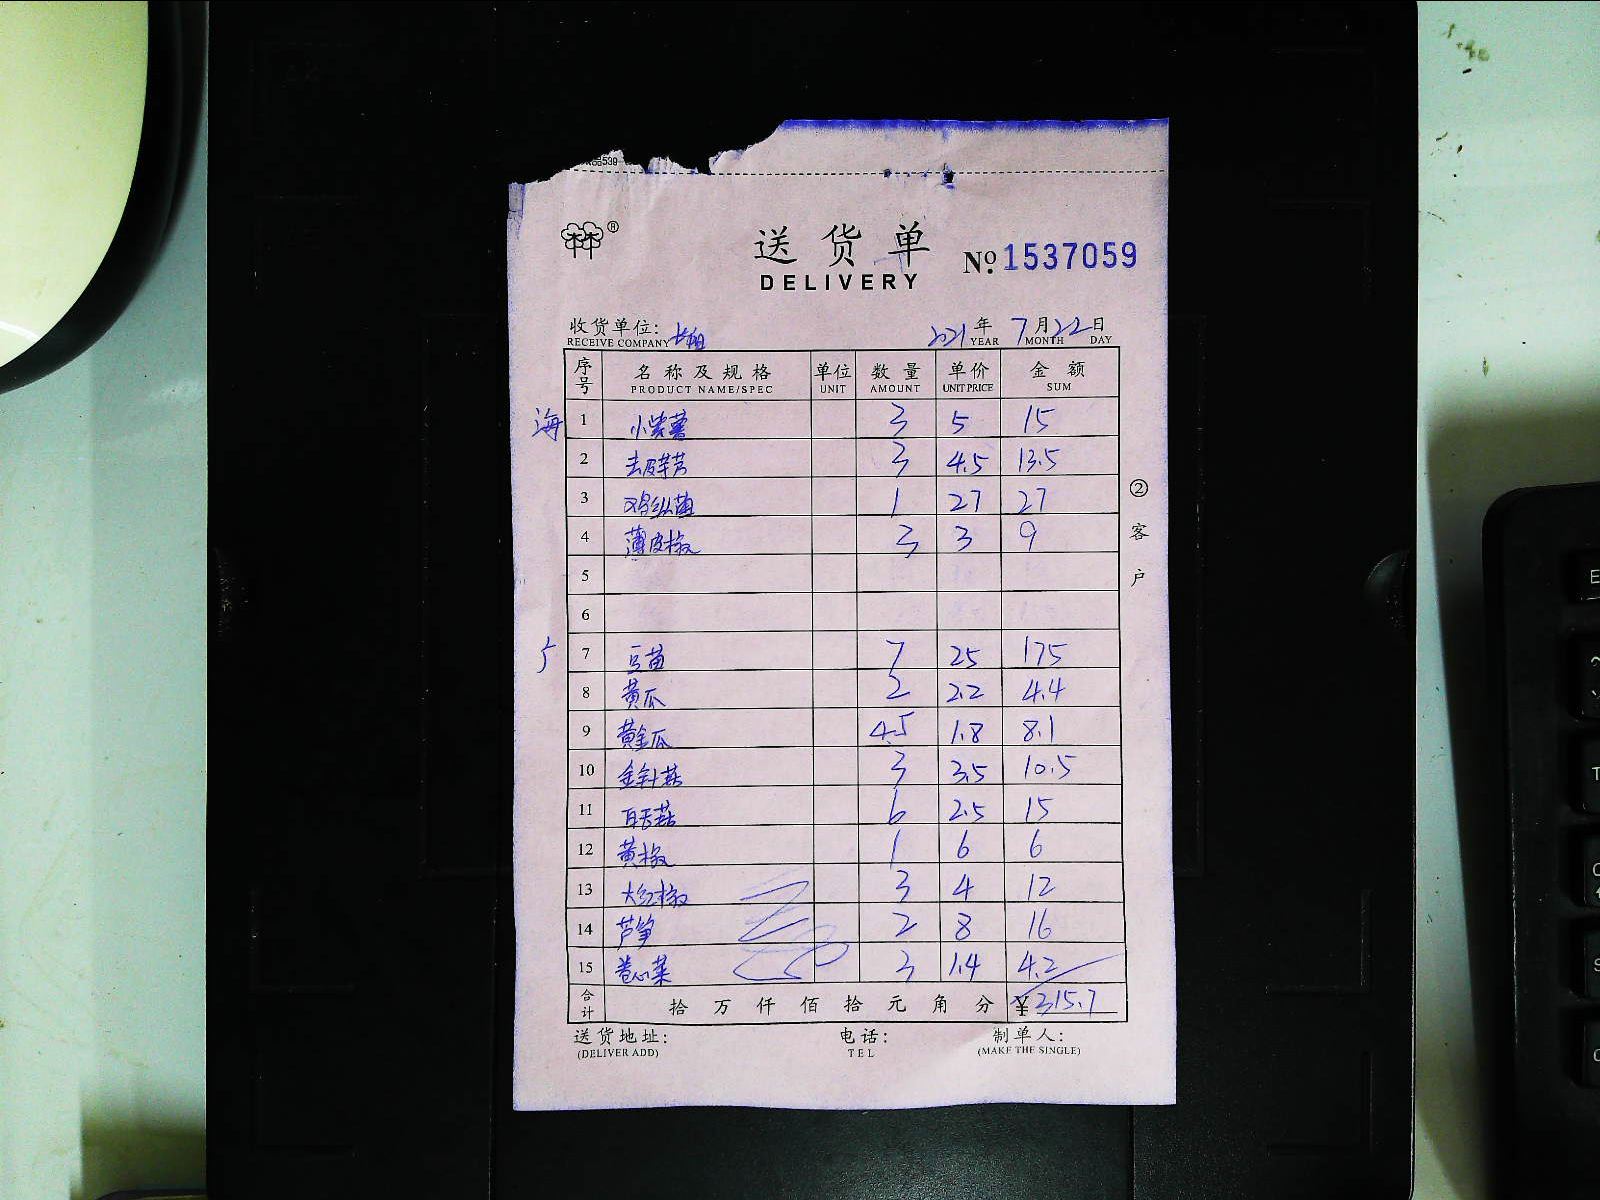 送货单 №1537059
DELIVERY
收货单位: 2021年7月22日
RECEIVE COMPANY YEAR MONTH DAY
序号 名称及规格 单位 数量 单价 金额
PRODUCT NAME/SPEC UNIT AMOUNT UNIT PRICE SUM
海 1 小紫薯 3 5 15
2 去皮芋艿 3 4.5 13.5
3 鸡纵菌 1 27 27
4 薄皮椒 3 3 9
5
6
7 豆苗 7 25 175
8 黄瓜 2 2.2 4.4
9 黄金瓜 4.5 1.8 8.1
10 金针菇 3 3.5 10.5
11 白玉菇 6 2.5 15
12 黄椒 1 6 6
13 大红椒 3 4 12
14 芦笋 2 8 16
15 卷心菜 3 1.4 4.2
合计 拾万仟佰拾元角分 ¥315.7
送货地址: 电话: 制单人:
(DELIVER ADD) TEL (MAKE THE SINGLE)
②客户